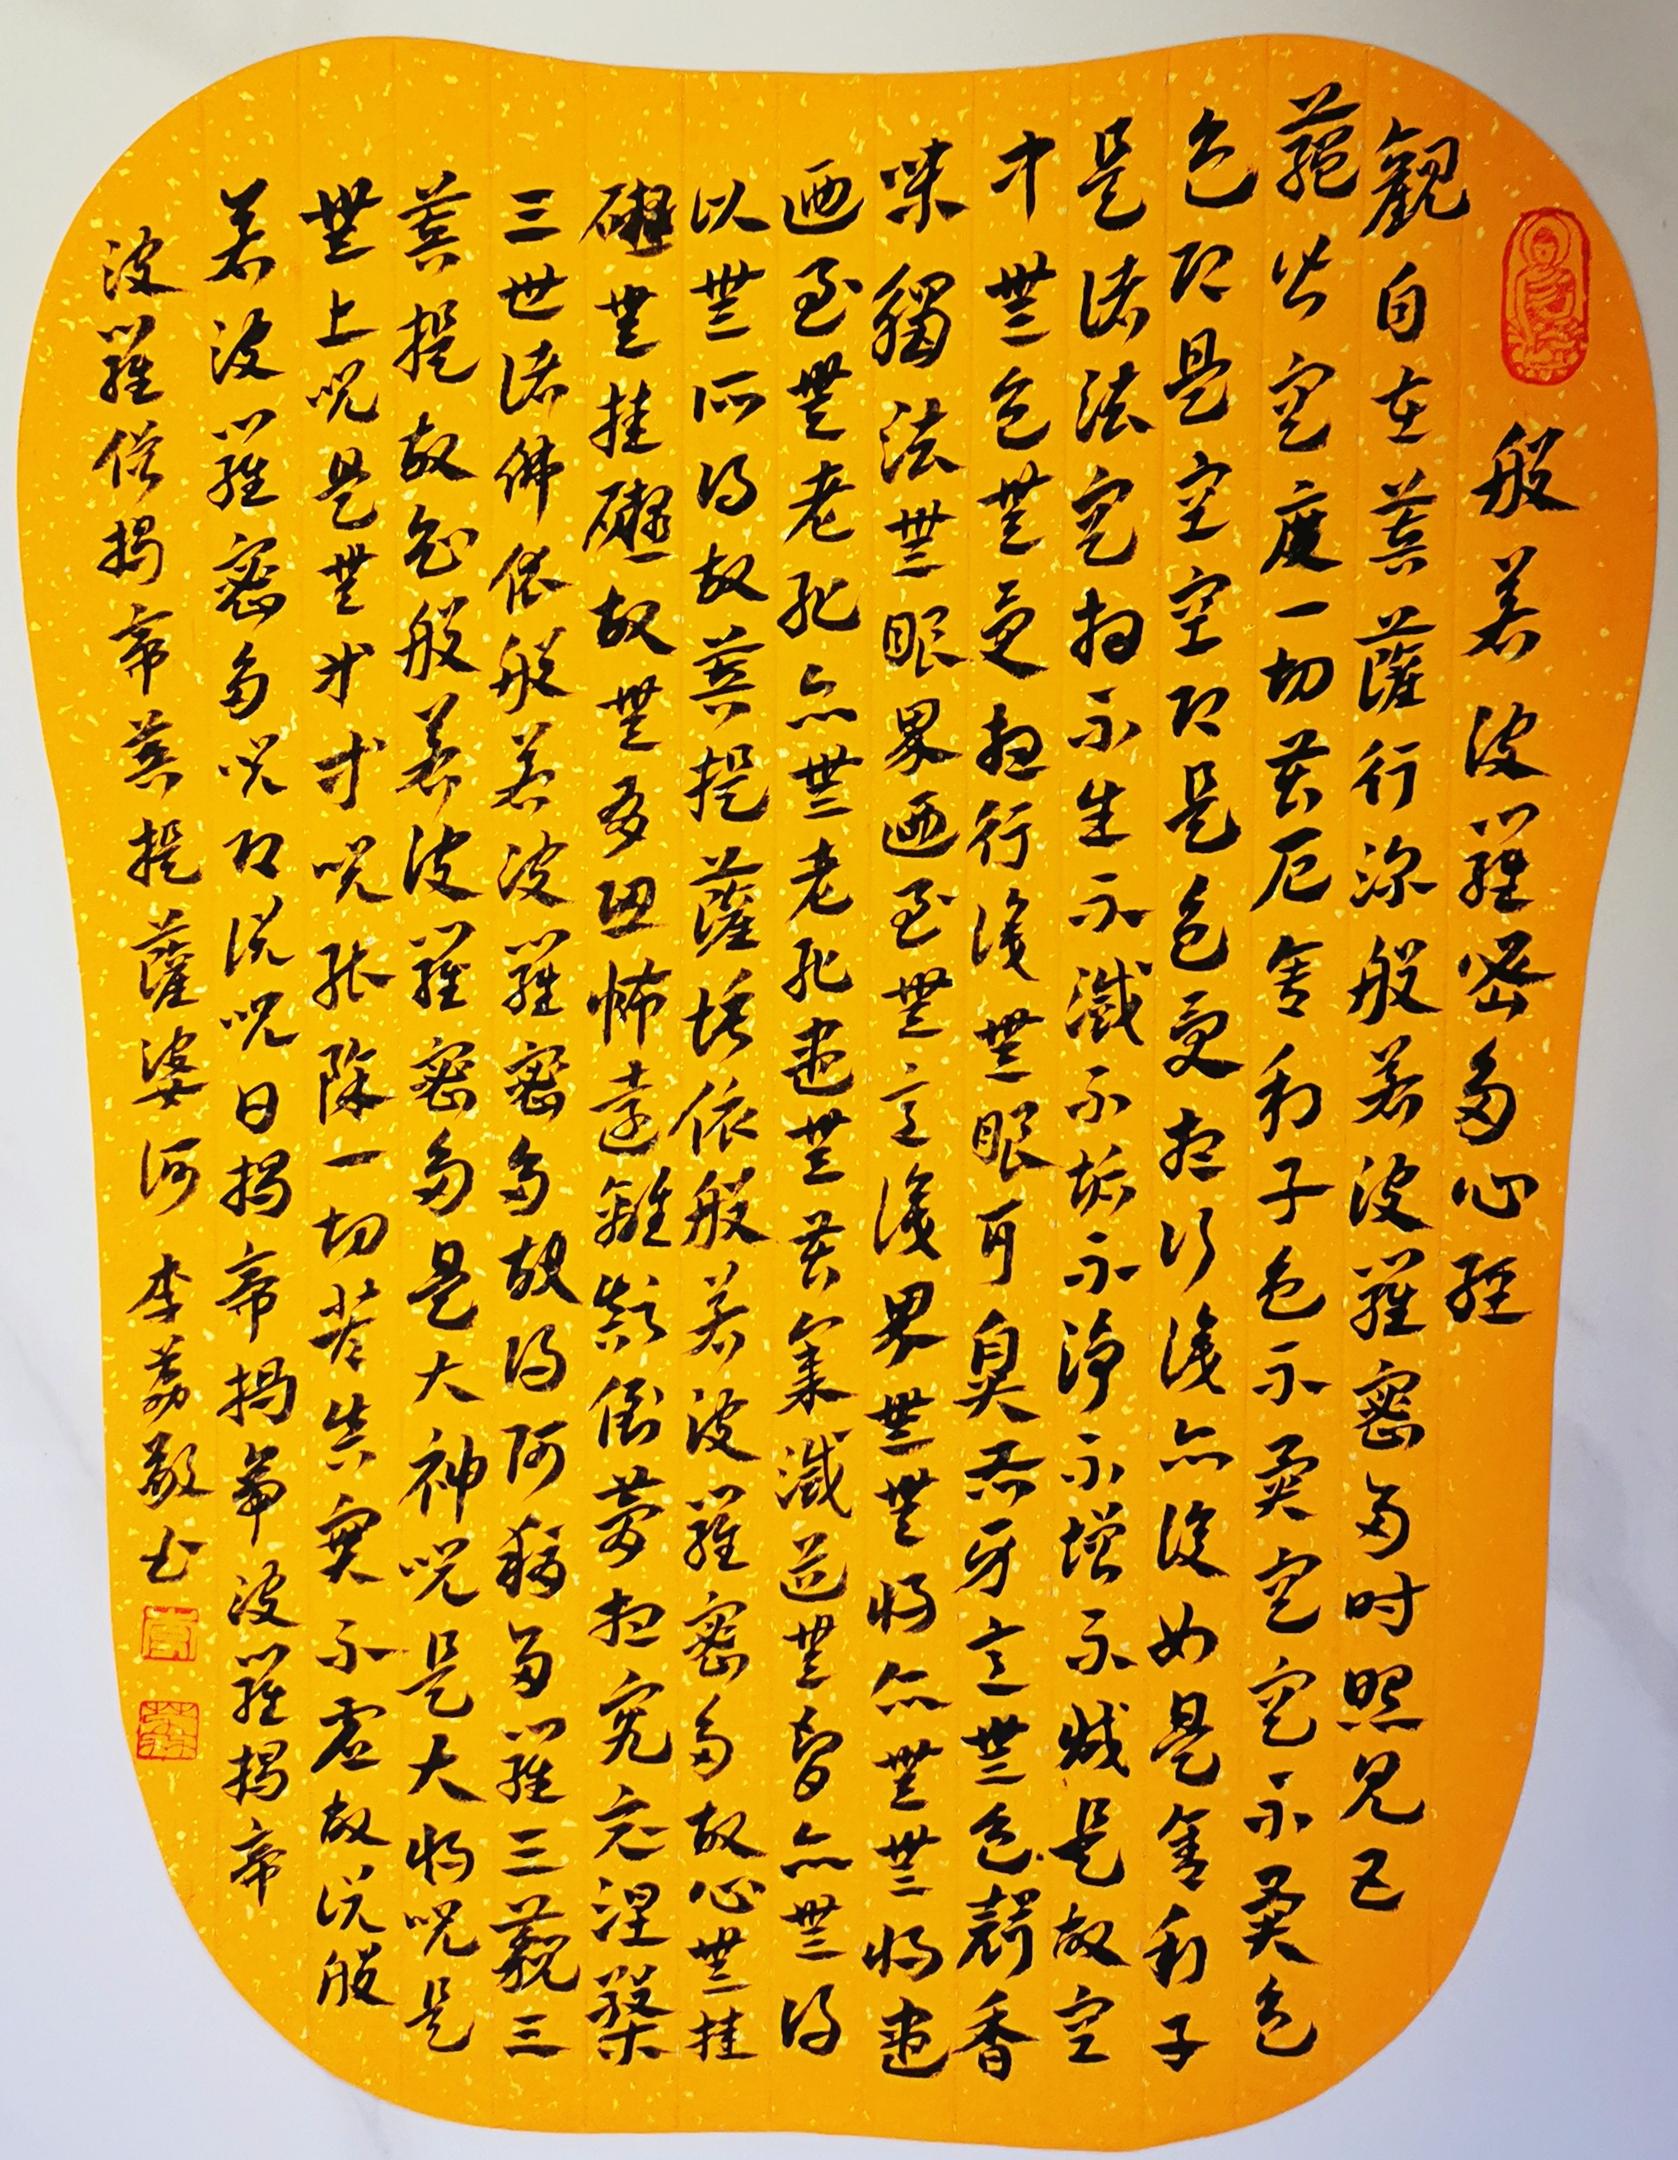 般若波羅密多心經
觀自在菩薩行深般若波羅密多時照見五
蘊皆空度一切苦厄舍利子色不異空空不異色
色即是空空即是色受想行識亦復如是舍利子
是諸法空相不生不滅不垢不淨不增不減是故空
中無色無受想行識無眼耳鼻舌身意無色聲香
味觸法無眼界迺至無意識界無無明亦無無明盡
迺至無老死亦無老死盡無苦集滅道無智亦無得
以無所得故菩提薩埵依般若波羅密多故心無挂
礙無挂礙故無有恐怖遠離顛倒夢想究竟涅槃
三世諸佛依般若波羅密多故得阿耨多羅三藐三
菩提故知般若波羅密多是大神咒是大明咒是
無上咒是無等等咒能除一切苦真實不虛故說般
若波羅密多咒即說咒曰揭帝揭帝波羅揭帝
波羅僧揭帝菩提薩婆訶 李荔敬书